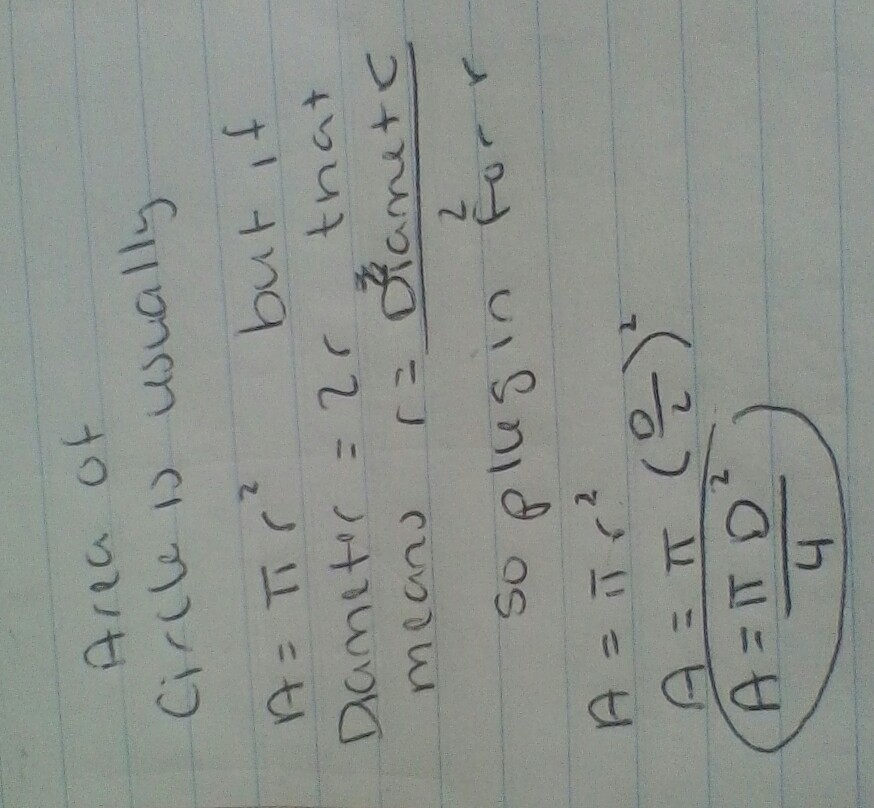 Area of
Circle is usually
A = πr² but if
Diameter = 2r that
means r = Diameter/2
so plug in for r
A = πr²
A = π (D/2)²
A = πD²/4